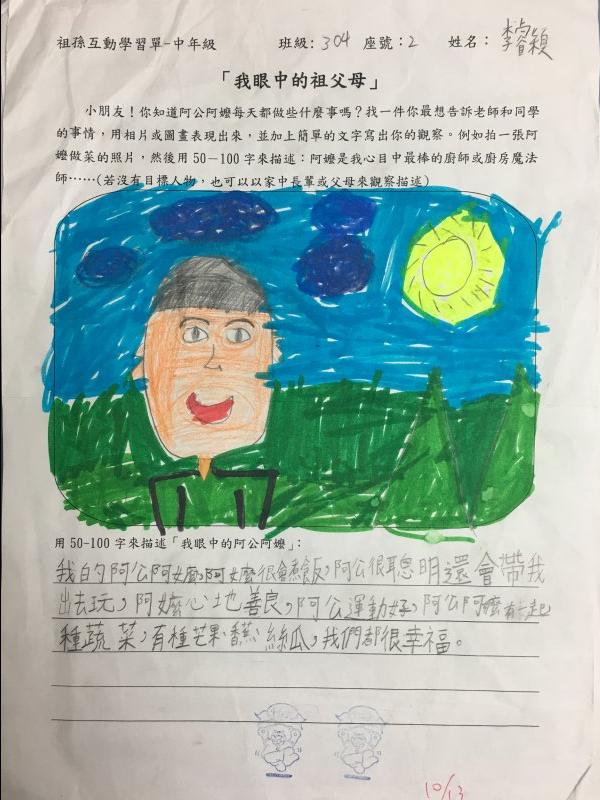 祖孫互動學習單-中年級 班級:304 座號:2 姓名:李睿穎
「我眼中的祖父母」
小朋友!你知道阿公阿嬤每天都做些什麼事嗎?找一件你最想告訴老師和同學
的事情,用相片或圖畫表現出來,並加上簡單的文字寫出你的觀察。例如拍一張阿
嬤做菜的照片,然後用50-100字來描述:阿嬤是我心目中最棒的廚師或廚房魔法
師……(若沒有目標人物,也可以以家中長輩或父母來觀察描述)
用50-100字來描述「我眼中的阿公阿嬤」:
我的阿公阿嬤,阿嬤很會煮飯,阿公很聰明還會帶我
出去玩,阿嬤心地善良,阿公運動好,阿公阿嬤有一起
種蔬菜,有種芒果、香蕉、絲瓜,我們都很幸福。
10/13